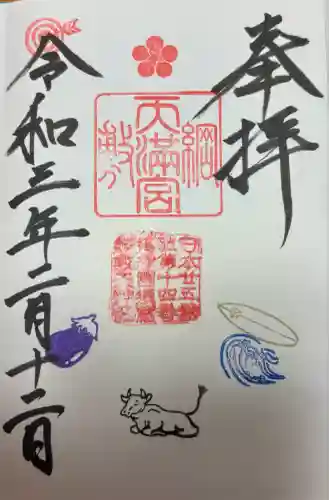 奉拝
綱
天滿宮
敷
令和三年二月十二日